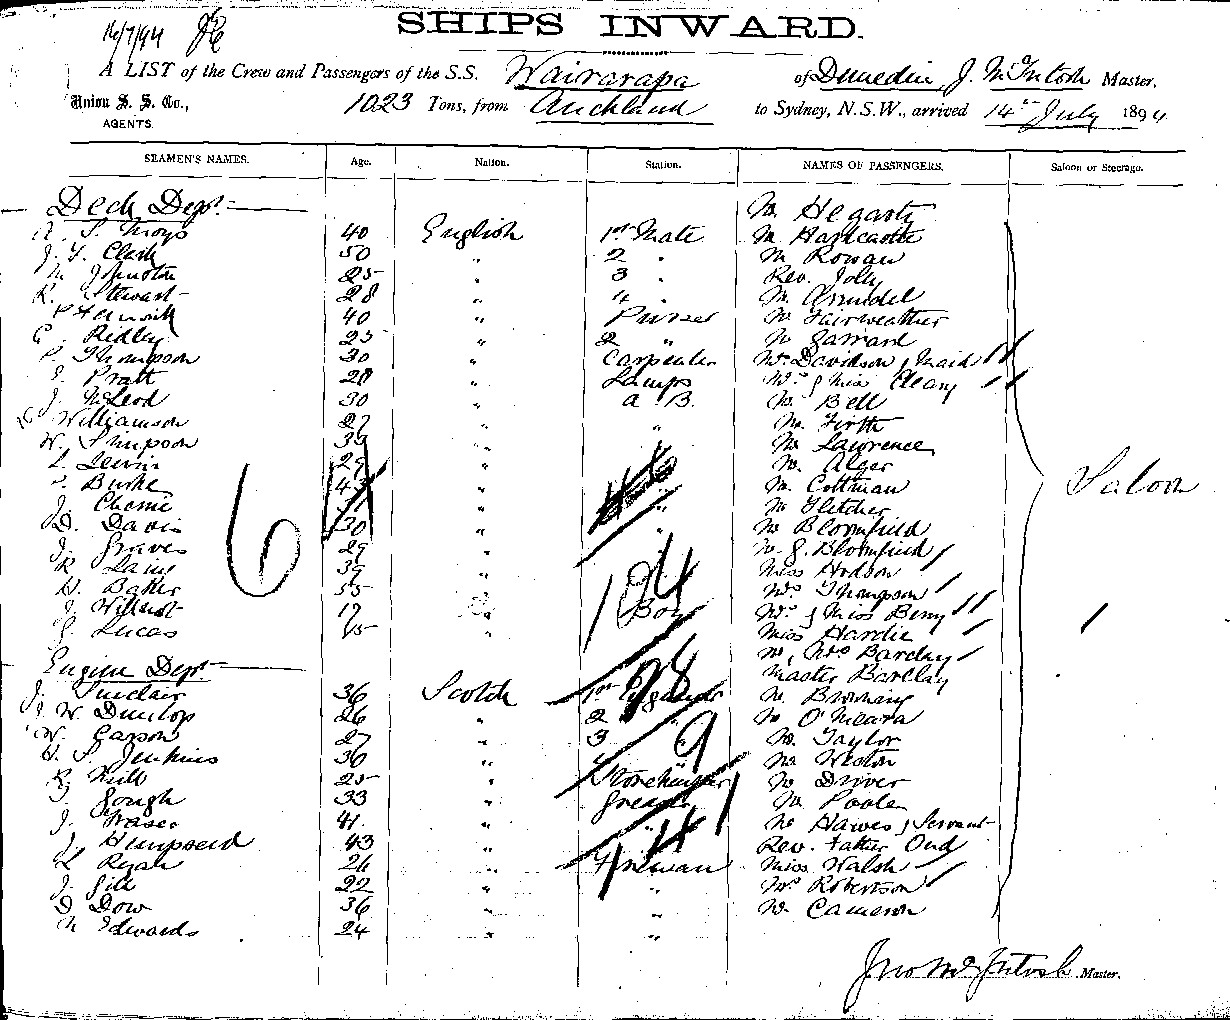 16/7/94
SHIPS INWARD.
A LIST of the Crew and Passengers of the S.S. Wairarapa of Dunedin, J. McIntosh Master.
Union S. S. Co., AGENTS. 1023 Tons, from Auckland to Sydney, N.S.W., arrived 14th July 1894
SEAMEN'S NAMES. Age. Nation. Station. NAMES OF PASSENGERS. Saloon or Steerage.
Deck Dept. Mr Hegarty
Moyes 40 English 1st Mate Mr Hardcastle
J. Y. Clark 50 " 2 " Mr Rowan
M. Johnston 25 " 3 " Rev. Joly
R. Stewart 28 " 4 " Mr Arundel
40 " Purser Mr Fairweather
C. Ridley 25 " 2 " Mr Garrard
P. Thompson 30 " Carpenter Mrs Davidson & Maid
J. Pratt 28 " Lamps Mrs & Miss Cleary
J. McLeod 30 " A B. Mr Bell
Williamson 27 " " Mr Firth
W. Simpson 39 " Mr Lawrence
L. Lewin 29 " Mr Alger
Burke 43 " Mr Cottman
J. " Mr Fletcher
D. Davis 30 " " Mr Bloomfield
J. Graves 29 " Mr G. Bloomfield
R. Laing 39 " Miss Hodson
H. Baker 55 " Mrs Thompson
J. 17 " Boy Mrs & Miss Berry
G. Lucas 15 " Miss Hardie
Engine Dept. Mr, Mrs Barclay
Master Barclay
J. Sinclair 36 Scotch 1st Engineer Mr Browning
J. W. Dunlop 26 " 2 " Mr O'Meara
W. Carson 27 " 3 " Mr Taylor
H. S. Jenkins 30 " 4 Mr Weston
Hill 25 " Storekeeper Mr Driver
J. Gough 33 " Greaser Mr Poole
J. Fraser 41 " " Mr Hawes & Servant
J. 43 " Rev. Father Oud
Ryan 24 " Fireman Miss Walsh
J. Gill 22 " " Mrs Robertson
D Dow 36 " " Mr Cameron
Edwards 24 " "
Saloon
6
104
98
9
1
14
Jno McIntosh Master.